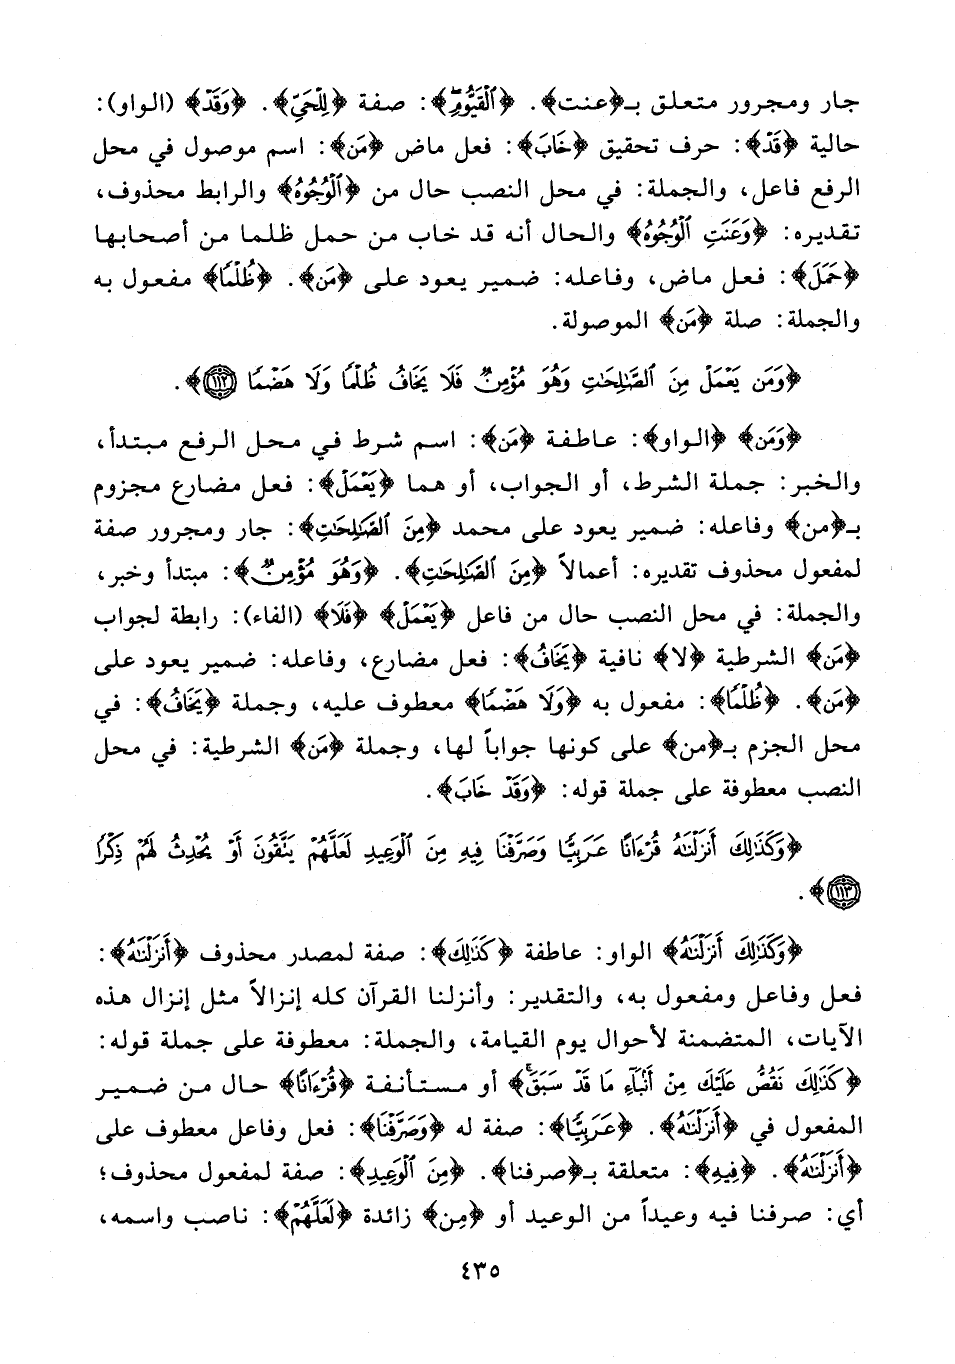 جار ومجرور متعلق بـ﴿عنت﴾. ﴿ٱلْقَيُّومِۖ﴾: صفة ﴿لِلْحَيِّ﴾. ﴿وَقَدْ﴾ (الواو):
حالية ﴿قَدْ﴾: حرف تحقيق ﴿خَابَ﴾: فعل ماض ﴿مَنْ﴾: اسم موصول في محل
الرفع فاعل، والجملة: في محل النصب حال من ﴿ٱلْوُجُوهُ﴾ والرابط محذوف،
تقديره: ﴿وَعَنَتِ ٱلْوُجُوهُ﴾ والحال أنه قد خاب من حمل ظلما من أصحابها
﴿حَمَلَ﴾: فعل ماض، وفاعله: ضمير يعود على ﴿مَنْ﴾. ﴿ظُلْمًا﴾ مفعول به
والجملة: صلة ﴿مَن﴾ الموصولة.
﴿وَمَن يَعْمَلْ مِنَ ٱلصَّٰلِحَٰتِ وَهُوَ مُؤْمِنٌ فَلَا يَخَافُ ظُلْمًا وَلَا هَضْمًا ۝١١٢﴾.
﴿وَمَن﴾ ﴿الواو﴾: عاطفة ﴿مَن﴾: اسم شرط في محل الرفع مبتدأ،
والخبر: جملة الشرط، أو الجواب، أو هما ﴿يَعْمَلْ﴾: فعل مضارع مجزوم
بـ﴿من﴾ وفاعله: ضمير يعود على محمد ﴿مِنَ ٱلصَّٰلِحَٰتِ﴾: جار ومجرور صفة
لمفعول محذوف تقديره: أعمالاً ﴿مِنَ ٱلصَّٰلِحَٰتِ﴾. ﴿وَهُوَ مُؤْمِنٌ﴾: مبتدأ وخبر،
والجملة: في محل النصب حال من فاعل ﴿يَعْمَلْ﴾ ﴿فَلَا﴾ (الفاء): رابطة لجواب
﴿مَن﴾ الشرطية ﴿لا﴾ نافية ﴿يَخَافُ﴾: فعل مضارع، وفاعله: ضمير يعود على
﴿مَن﴾. ﴿ظُلْمًا﴾: مفعول به ﴿وَلَا هَضْمًا﴾ معطوف عليه، وجملة ﴿يَخَافُ﴾: في
محل الجزم بـ﴿من﴾ على كونها جواباً لها، وجملة ﴿مَن﴾ الشرطية: في محل
النصب معطوفة على جملة قوله: ﴿وَقَدْ خَابَ﴾.
﴿وَكَذَٰلِكَ أَنزَلْنَٰهُ قُرْءَانًا عَرَبِيًّا وَصَرَّفْنَا فِيهِ مِنَ ٱلْوَعِيدِ لَعَلَّهُمْ يَتَّقُونَ أَوْ يُحْدِثُ لَهُمْ ذِكْرًا
۝١١٣﴾.
﴿وَكَذَٰلِكَ أَنزَلْنَٰهُ﴾ الواو: عاطفة ﴿كَذَٰلِكَ﴾: صفة لمصدر محذوف ﴿أَنزَلْنَٰهُ﴾:
فعل وفاعل ومفعول به، والتقدير: وأنزلنا القرآن كله إنزالاً مثل إنزال هذه
الآيات، المتضمنة لأحوال يوم القيامة، والجملة: معطوفة على جملة قوله:
﴿كَذَٰلِكَ نَقُصُّ عَلَيْكَ مِنْ أَنۢبَآءِ مَا قَدْ سَبَقَۚ﴾ أو مستأنفة ﴿قُرْءَانًا﴾ حال من ضمير
المفعول في ﴿أَنزَلْنَٰهُ﴾. ﴿عَرَبِيًّا﴾: صفة له ﴿وَصَرَّفْنَا﴾: فعل وفاعل معطوف على
﴿أَنزَلْنَٰهُ﴾. ﴿فِيهِ﴾: متعلقة بـ﴿صرفنا﴾. ﴿مِنَ ٱلْوَعِيدِ﴾: صفة لمفعول محذوف؛
أي: صرفنا فيه وعيداً من الوعيد أو ﴿مِن﴾ زائدة ﴿لَعَلَّهُمْ﴾: ناصب واسمه،
٤٣٥